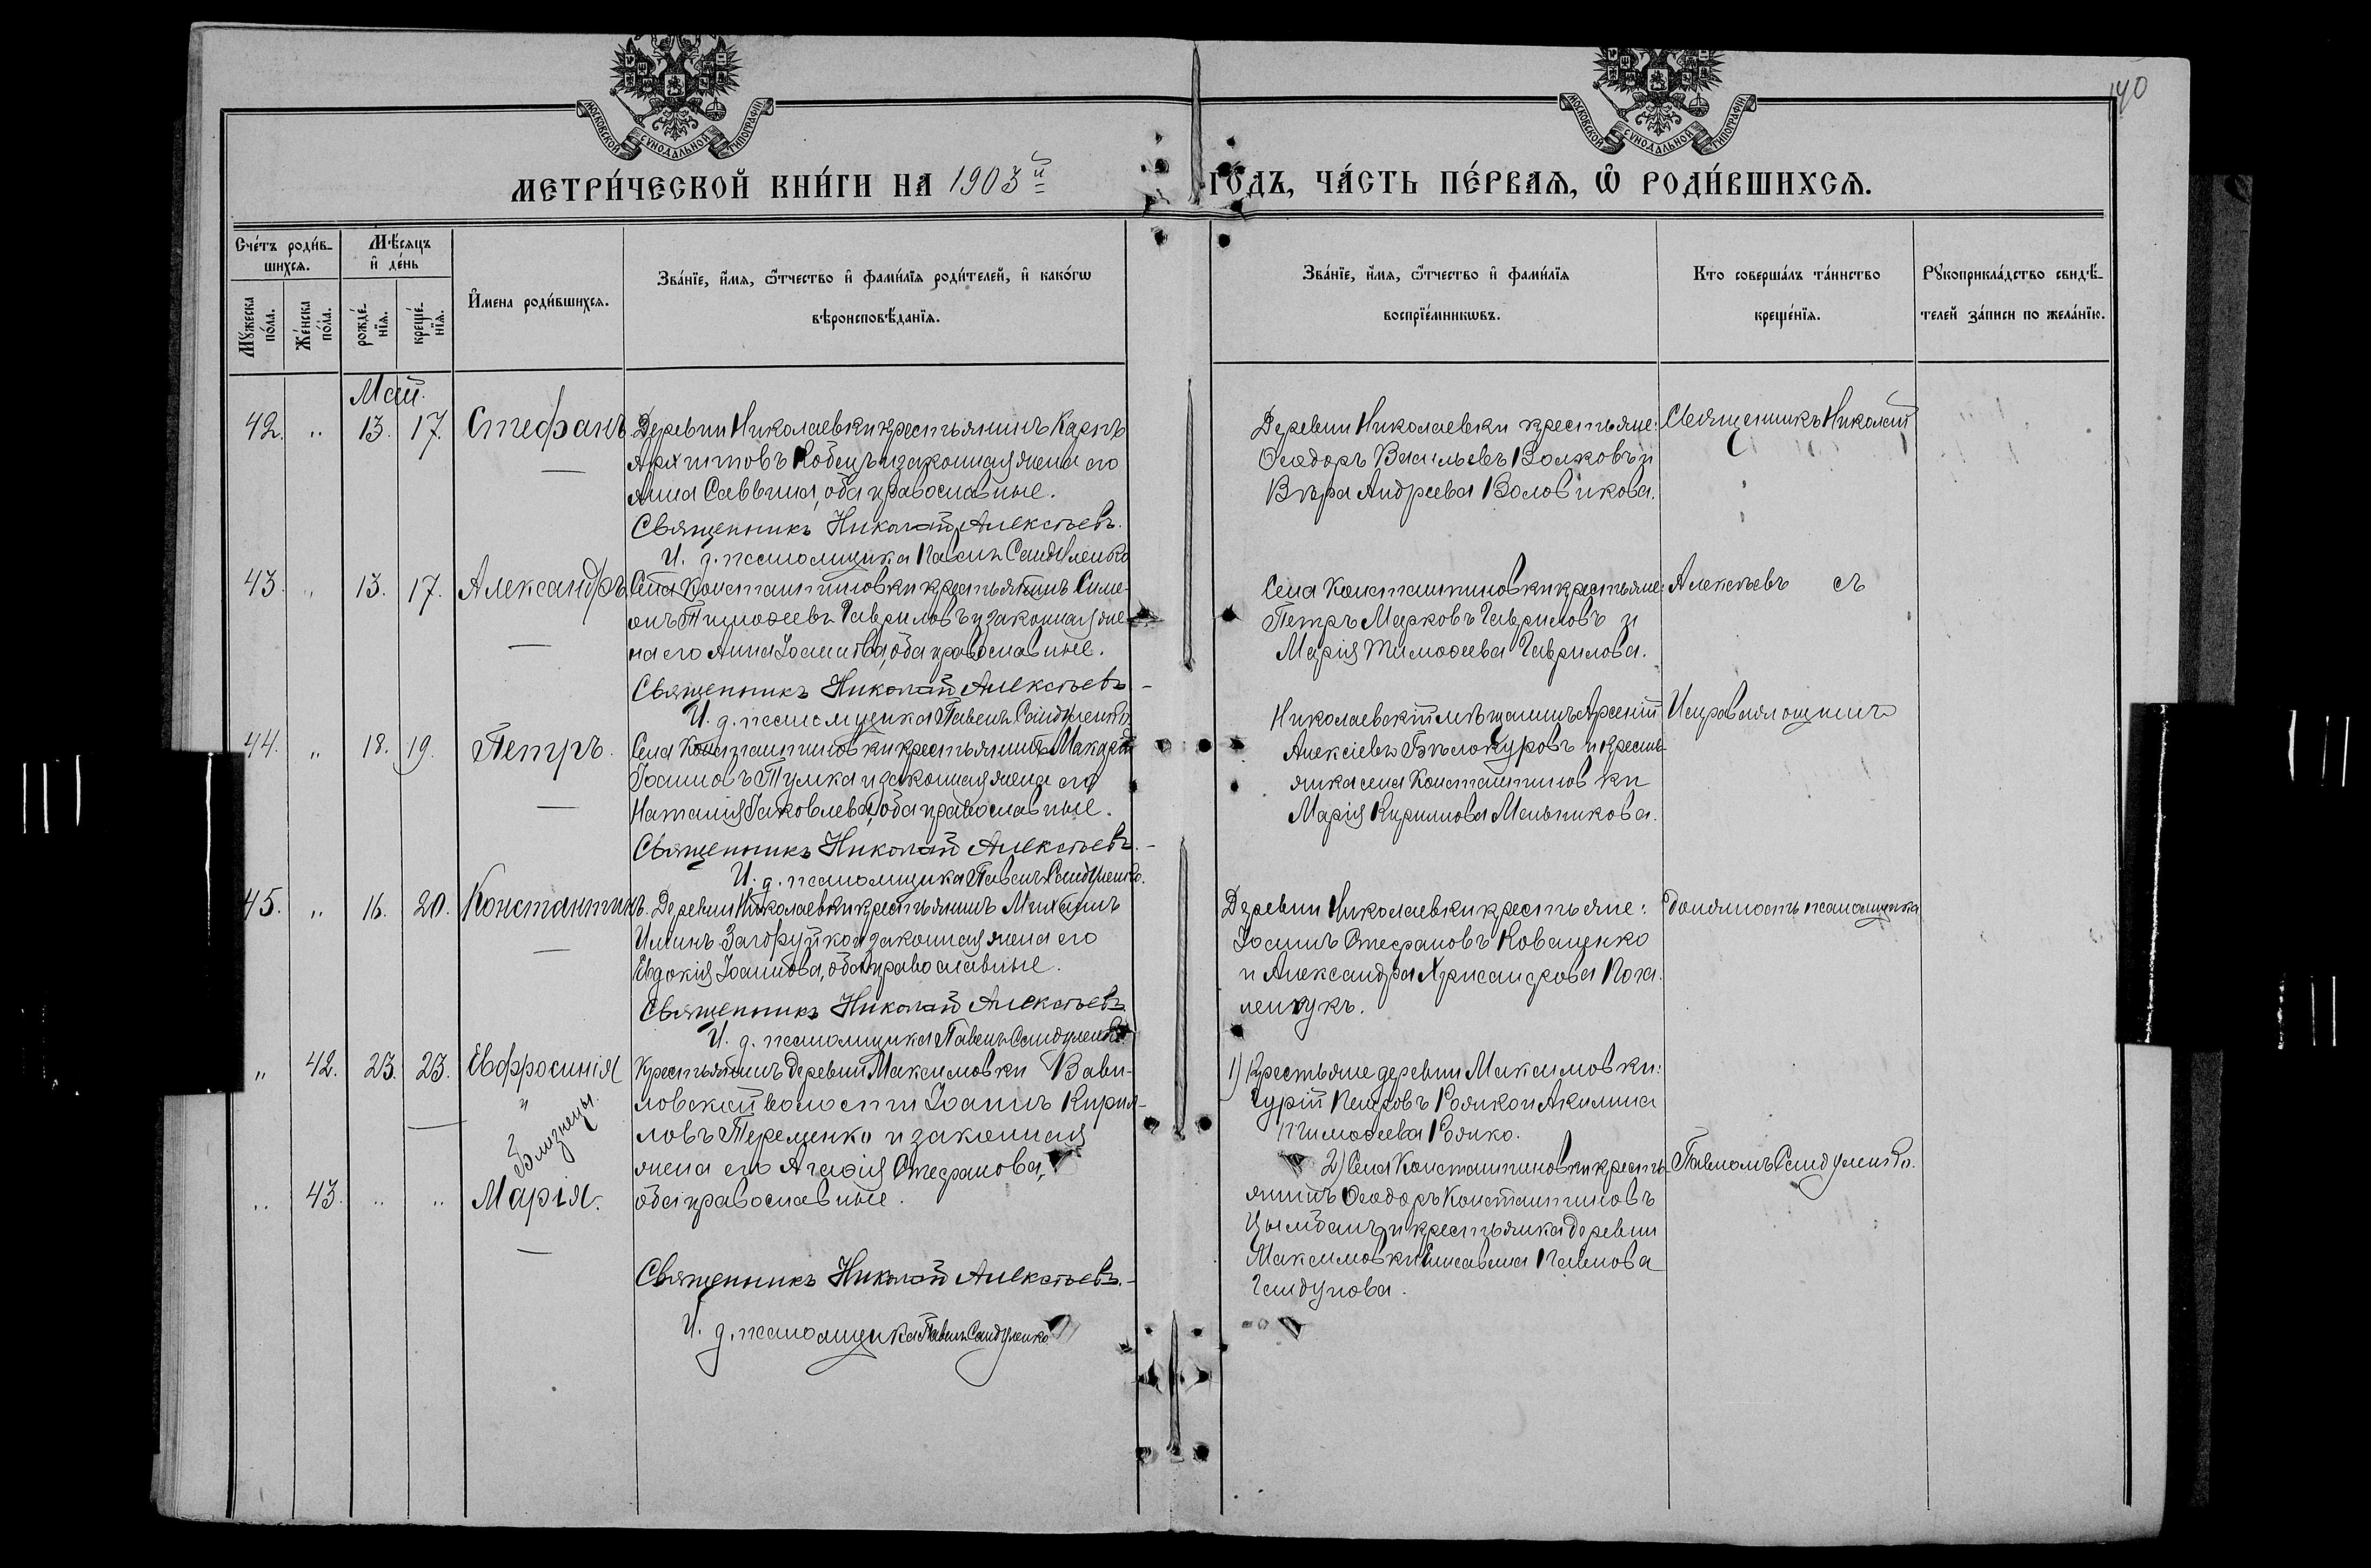 140
МОСКОВСКОЙ СѴНОДАЛЬНОЙ ТИПОГРАФІИ
МОСКОВСКОЙ СѴНОДАЛЬНОЙ ТИПОГРАФІИ
МЕТРИ́ЧЕСКОЙ КНИ́ГИ НА 1903й ГО́ДЪ, ЧА́СТЬ ПЕ́РВАѦ, Ѡ҆ РОДИ́ВШИХСѦ.
Сче́тъ роди́в-
шихсѧ.
Мꙋ́жеска по́ла.
Же́нска по́ла.
Мѣ́сяцъ
и҆ де́нь
рожде́-
нїѧ.
креще́-
нїѧ.
И҆́мена роди́вшихсѧ.
Зва́нїе, и҆́мѧ, ѻ҆́тчество и҆ фами́лїѧ роди́телей, и҆ како́гѡ
вѣроисповѣ́данїѧ.
Зва́нїе, и҆́мѧ, ѻ҆́тчество и҆ фами́лїѧ
воспрїе́мникѡвъ.
Кто соверша́лъ та́инство
креще́нїѧ.
Рꙋкоприкла́дство свидѣ́-
телей за́писи по жела́нїю.
Май.
42. „ 13. 17. Стефанъ
Деревни Николаевки крестьянинъ Карпъ
Архиповъ Кобецъ и законная жена его
Анна Саввина, оба православные.
Священникъ Николай Алексѣевъ.
И. д. псаломщика Павелъ Сандуленко
Деревни Николаевки крестьяне:
Ѳеодоръ Васильевъ Волковъ и
Вѣра Андреева Воловикова.
Священникъ Николай
43. „ 13. 17. Александръ
Села Константиновки крестьянинъ Симе-
онъ Тимоѳеевъ Гавриловъ и законная же-
на его Анна Іоаннова, оба православные.
Священникъ Николай Алексѣевъ
И. д. псаломщика Павелъ Сандуленко
Села Константиновки крестьяне:
Петръ Марковъ Гавриловъ и
Марія Тимоѳеева Гаврилова.
Алексѣевъ съ
44. „ 18. 19. Петръ.
Села Константиновки крестьянинъ Макарій
Іоанновъ Тумка и законная жена его
Наталія Іаковлева, оба православные.
Священникъ Николай Алексѣевъ.
И. д. псаломщика Павелъ Сандуленко.
Николаевскій мѣщанинъ Арсеній
Алексіевъ Бѣлокуровъ и кресть-
янка села Константиновки
Марія Кириллова Мельникова.
Исправляющимъ
45. „ 16. 20. Константинъ.
Деревни Николаевки крестьянинъ Михаилъ
Илiинъ Загоруйко и законная жена его
Евдокія Іоаннова, оба православные.
Священникъ Николай Алексѣевъ
И. д. псаломщика Павелъ Сандуленко.
Деревни Николаевки крестьяне:
Іоаннъ Стефановъ Коваценко
и Александра Хрисанфова
должность псаломщика
„ 42. 23. 23. Евфросинія
Близнецы.
Крестьянинъ деревни Максимовки Вави-
ловской волости Іоаннъ Кирил-
ловъ Терещенко и законная
жена его Агаѳія Стефанова,
оба православные.
1) Крестьяне деревни Максимовки:
Гурій Петровъ Божко и Акилина
Тимоѳеева Божко.
„ 43. „ „ Марія.
2) Села Константиновки кресть-
янинъ Ѳеодоръ Константиновъ
Цымбалъ и крестьянка деревни
Максимовки Елисавета Павлова
Гайдукова.
Павломъ Сандуленко.
Священникъ Николай Алексѣевъ.
И. д. псаломщика Павелъ Сандуленко